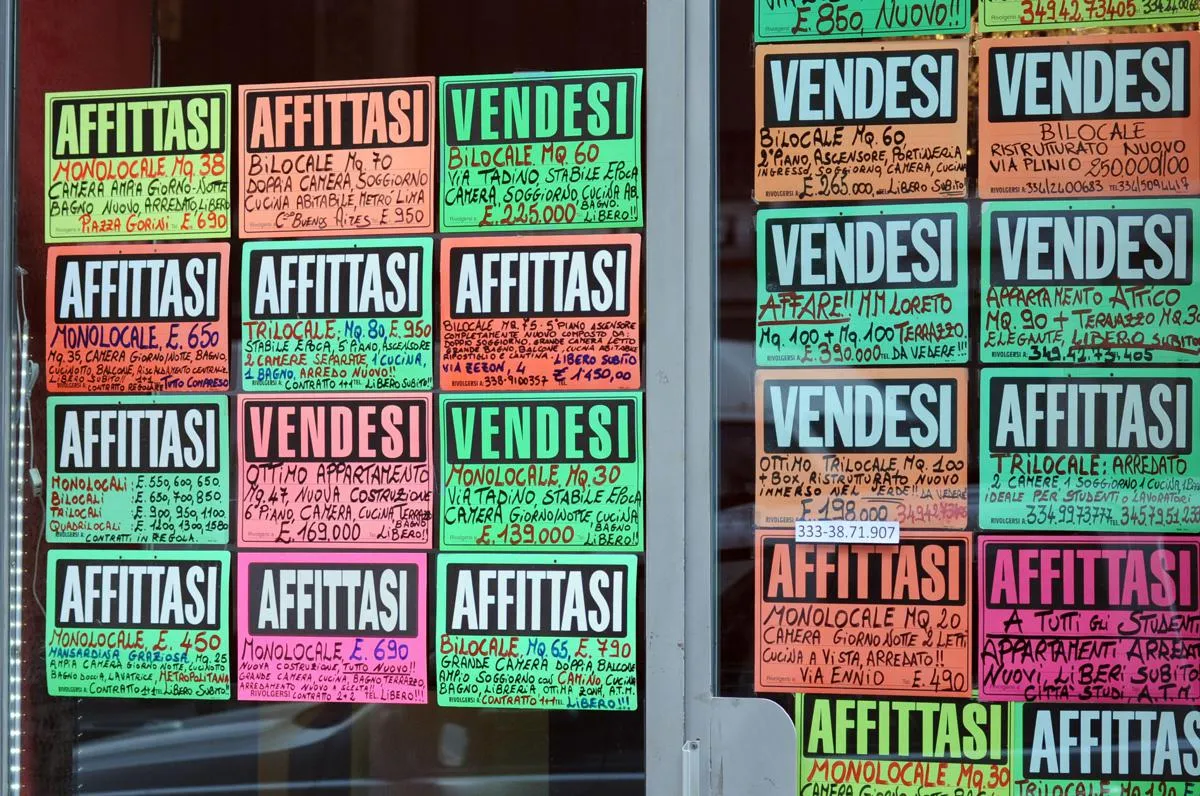 AFFITTASI
MONOLOCALE MQ. 38
CAMERA AMPIA GIORNO-NOTTE
BAGNO NUOVO, ARREDATO, LIBERO
PIAZZA GORINI E. 690
AFFITTASI
BILOCALE MQ. 70
DOPPIA CAMERA, SOGGIORNO
CUCINA ABITABILE, METRO LIMA
C.so BUENOS AIRES E. 950
VENDESI
BILOCALE MQ. 60
VIA TADINO, STABILE EPOCA
CAMERA, SOGGIORNO, CUCINA AB.
BAGNO.
E. 225.000 LIBERO!!
AFFITTASI
MONOLOCALE, E. 650
MQ. 35, CAMERA GIORNO/NOTTE, BAGNO,
CUCINOTTO, BALCONE, RISCALDAMENTO
LIBERO SUBITO!! 1+1 TUTTO COMPRESO
CONTRATTO REGOLARE
AFFITTASI
TRILOCALE, MQ. 80, E. 950
STABILE EPOCA, 5°PIANO, ASCENSORE
2 CAMERE SEPARATE, 1 CUCINA,
1 BAGNO, ARREDO NUOVO!!
RIVOLGERSI A CONTRATTO 1+1 TEL. LIBERO SUBITO!!
AFFITTASI
BILOCALE, MQ. 75 - 5°PIANO ASCENSORE
COMPLETAMENTE NUOVO COMPOSTO DA:
DOPPIO SOGGIORNO, GRANDE CAMERA LETTO
GRANDE BAGNO, BALCONE, CUCINA ABITABILE
RIPOSTIGLIO E CANTINA. LIBERO SUBITO
VIA ZEZON, 4 E. 1'450,00
RIVOLGERSI A 338-9100357 TEL.
AFFITTASI
MONOLOCALI: E. 550, 600, 650.
BILOCALI: E. 650, 700, 850.
TRILOCALI: E. 900, 950, 1100
QUADRILOCALI: E. 1200, 1300, 1580
CONTRATTI IN REGOLA.
VENDESI
OTTIMO APPARTAMENTO
MQ. 47, NUOVA COSTRUZIONE
6°PIANO, CAMERA, CUCINA, TERRAZZO
BAGNO
E. 169.000 LIBERO!!
VENDESI
MONOLOCALE, MQ. 30
VIA TADINO, STABILE EPOCA
CAMERA GIORNO/NOTTE CUCINA
BAGNO
E. 139.000 LIBERO!!
AFFITTASI
MONOLOCALE, E. 450
MANSARDINA GRAZIOSA, MQ. 25
AMPIA CAMERA GIORNO NOTTE, CUCINOTTO
BAGNO DOCCIA, LAVATRICE, METROPOLITANA
RIVOLGERSI A CONTRATTO 1+1 TEL. LIBERO SUBITO!
AFFITTASI
MONOLOCALE, E. 690
NUOVA COSTRUZIONE, TUTTO NUOVO!!
GRANDE CAMERA, CUCINA, BAGNO TERRAZZO,
ARREDAMENTO NUOVO A SCELTA!!
RIVOLGERSI CONTRATTO 2+2 TEL. LIBERO!!!
AFFITTASI
BILOCALE, MQ 65, E. 790
GRANDE CAMERA DOPPIA, BALCONE
AMPIO SOGGIORNO CON CAMINO, CUCINA
BAGNO, LIBRERIA, OTTIMA ZONA, A.T.M.
RIVOLGERSI A CONTRATTO 1+1 TEL. LIBERO!!!
E. 850, NUOVO!!
3494273405
VENDESI
BILOCALE MQ. 60
2°PIANO, ASCENSORE, PORTINERIA
INGRESSO, SOGGIORNO, CAMERA, CUCINA
RIVOLGERSI A E. 265.000, LIBERO SUBITO
VENDESI
BILOCALE
RISTRUTTURATO NUOVO
VIA PLINIO 250000/00
RIVOLGERSI A 3342400683 TEL.
VENDESI
AFFARE!! MM LORETO
MQ. 100 + MQ. 100 TERRAZZO.
E. 390.000 TEL. DA VEDERE!!!
VENDESI
APPARTAMENTO ATTICO
MQ. 90 + TERRAZZO MQ. 30
ELEGANTE, LIBERO SUBITO
349.42.73.405
VENDESI
OTTIMO TRILOCALE, MQ. 100
+ BOX, RISTRUTTURATO NUOVO
IMMERSO NEL VERDE!! DA VEDERE
E. 198'000
333-38.71.907
AFFITTASI
TRILOCALE: ARREDATO
2 CAMERE 1 SOGGIORNO 1 CUCINA,
IDEALE PER STUDENTI O LAVORATORI
RIVOLGERSI A 334.9973.777 TEL. 345.79.51.23
AFFITTASI
MONOLOCALE MQ 20
CAMERA GIORNO NOTTE 2 LETTI
CUCINA A VISTA, ARREDATO!!
VIA ENNIO E. 490
AFFITTASI
A TUTTI GLI STUDENTI
APPARTAMENTI ARREDATI
NUOVI, LIBERI SUBITO
CITTÀ STUDI, A.T.M.
AFFITTASI
MONOLOCALE MQ. 30
CAMERA GIORNO NOTTE BAGNO
AFFITTAS
TRILOCALE MQ. 120